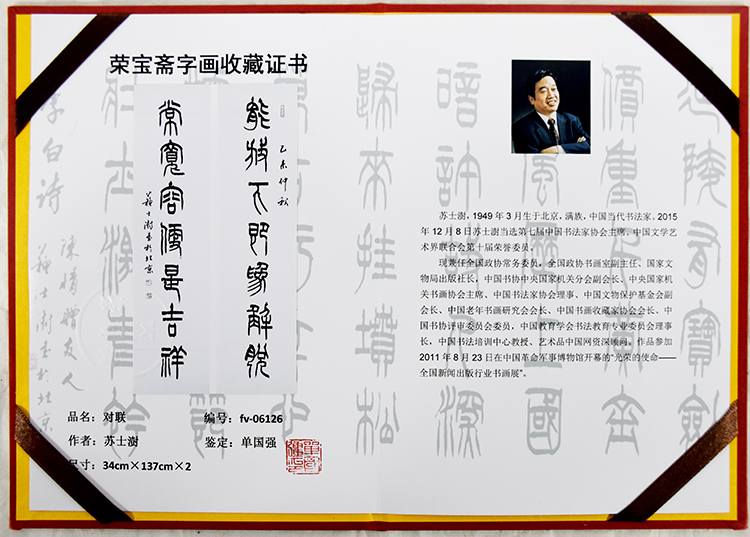 荣宝斋字画收藏证书
能放下即为解脱
乙未仲秋
常宽容便是吉祥
苏士澍书于北京
品名：对联
编号：fv-06126
作者：苏士澍
鉴定：单国强
尺寸：34cm×137cm×2
苏士澍，1949 年 3 月生于北京，满族，中国当代书法家。2015
年 12 月 8 日苏士澍当选第七届中国书法家协会主席、中国文学艺
术界联合会第十届荣誉委员，
现兼任全国政协常务委员，全国政协书画室副主任、国家文
物局出版社长，中国书协中央国家机关分会副会长、中央国家机
关书画协会主席、中国书法家协会理事、中国文物保护基金会副
会长、中国老年书画研究会会长、中国书画收藏家协会会长、中
国书协评审委员会委员，中国教育学会书法教育专业委员会理事
长，中国书法培训中心教授、艺术品中国网资深顾问。作品参加
2011 年 8 月 23 日在中国革命军事博物馆开幕的“光荣的使命——
全国新闻出版行业书画展”。
李白诗